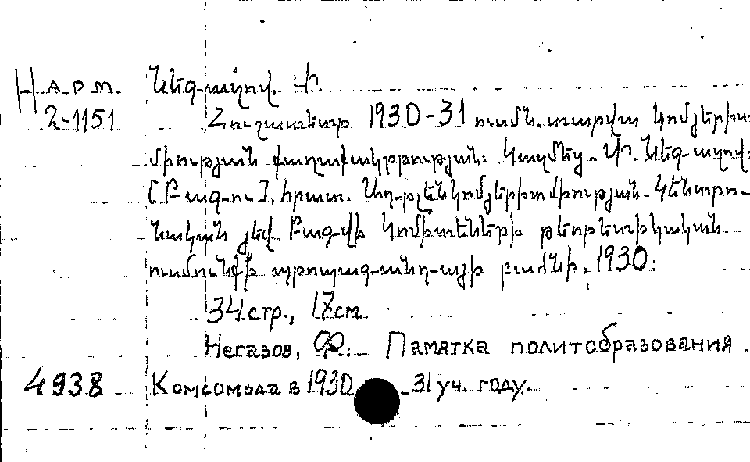 Н А.Р.М. Նեգ-ազով. Ֆ.
2-1151 Հուշատետր 1930-31 ուսմն. տարվա կոմյերիտ
միության քաղաքակրթության: Կազմեց - Ֆ. Նեգ-ազով:
[Բագ-ու], հրատ. Ադրլենկոմյերիտմիության Կենտրո-
նական յեվ Բագ-վի կոմիտեների թեորետիկական
ուսուման պրոպագ-անդ-այի բաժնի, 1930:
34 стр., 17 см.
Негазов, Ф. Памятка политобразования
4938 Комсомола в 1930 - 31 уч. году.